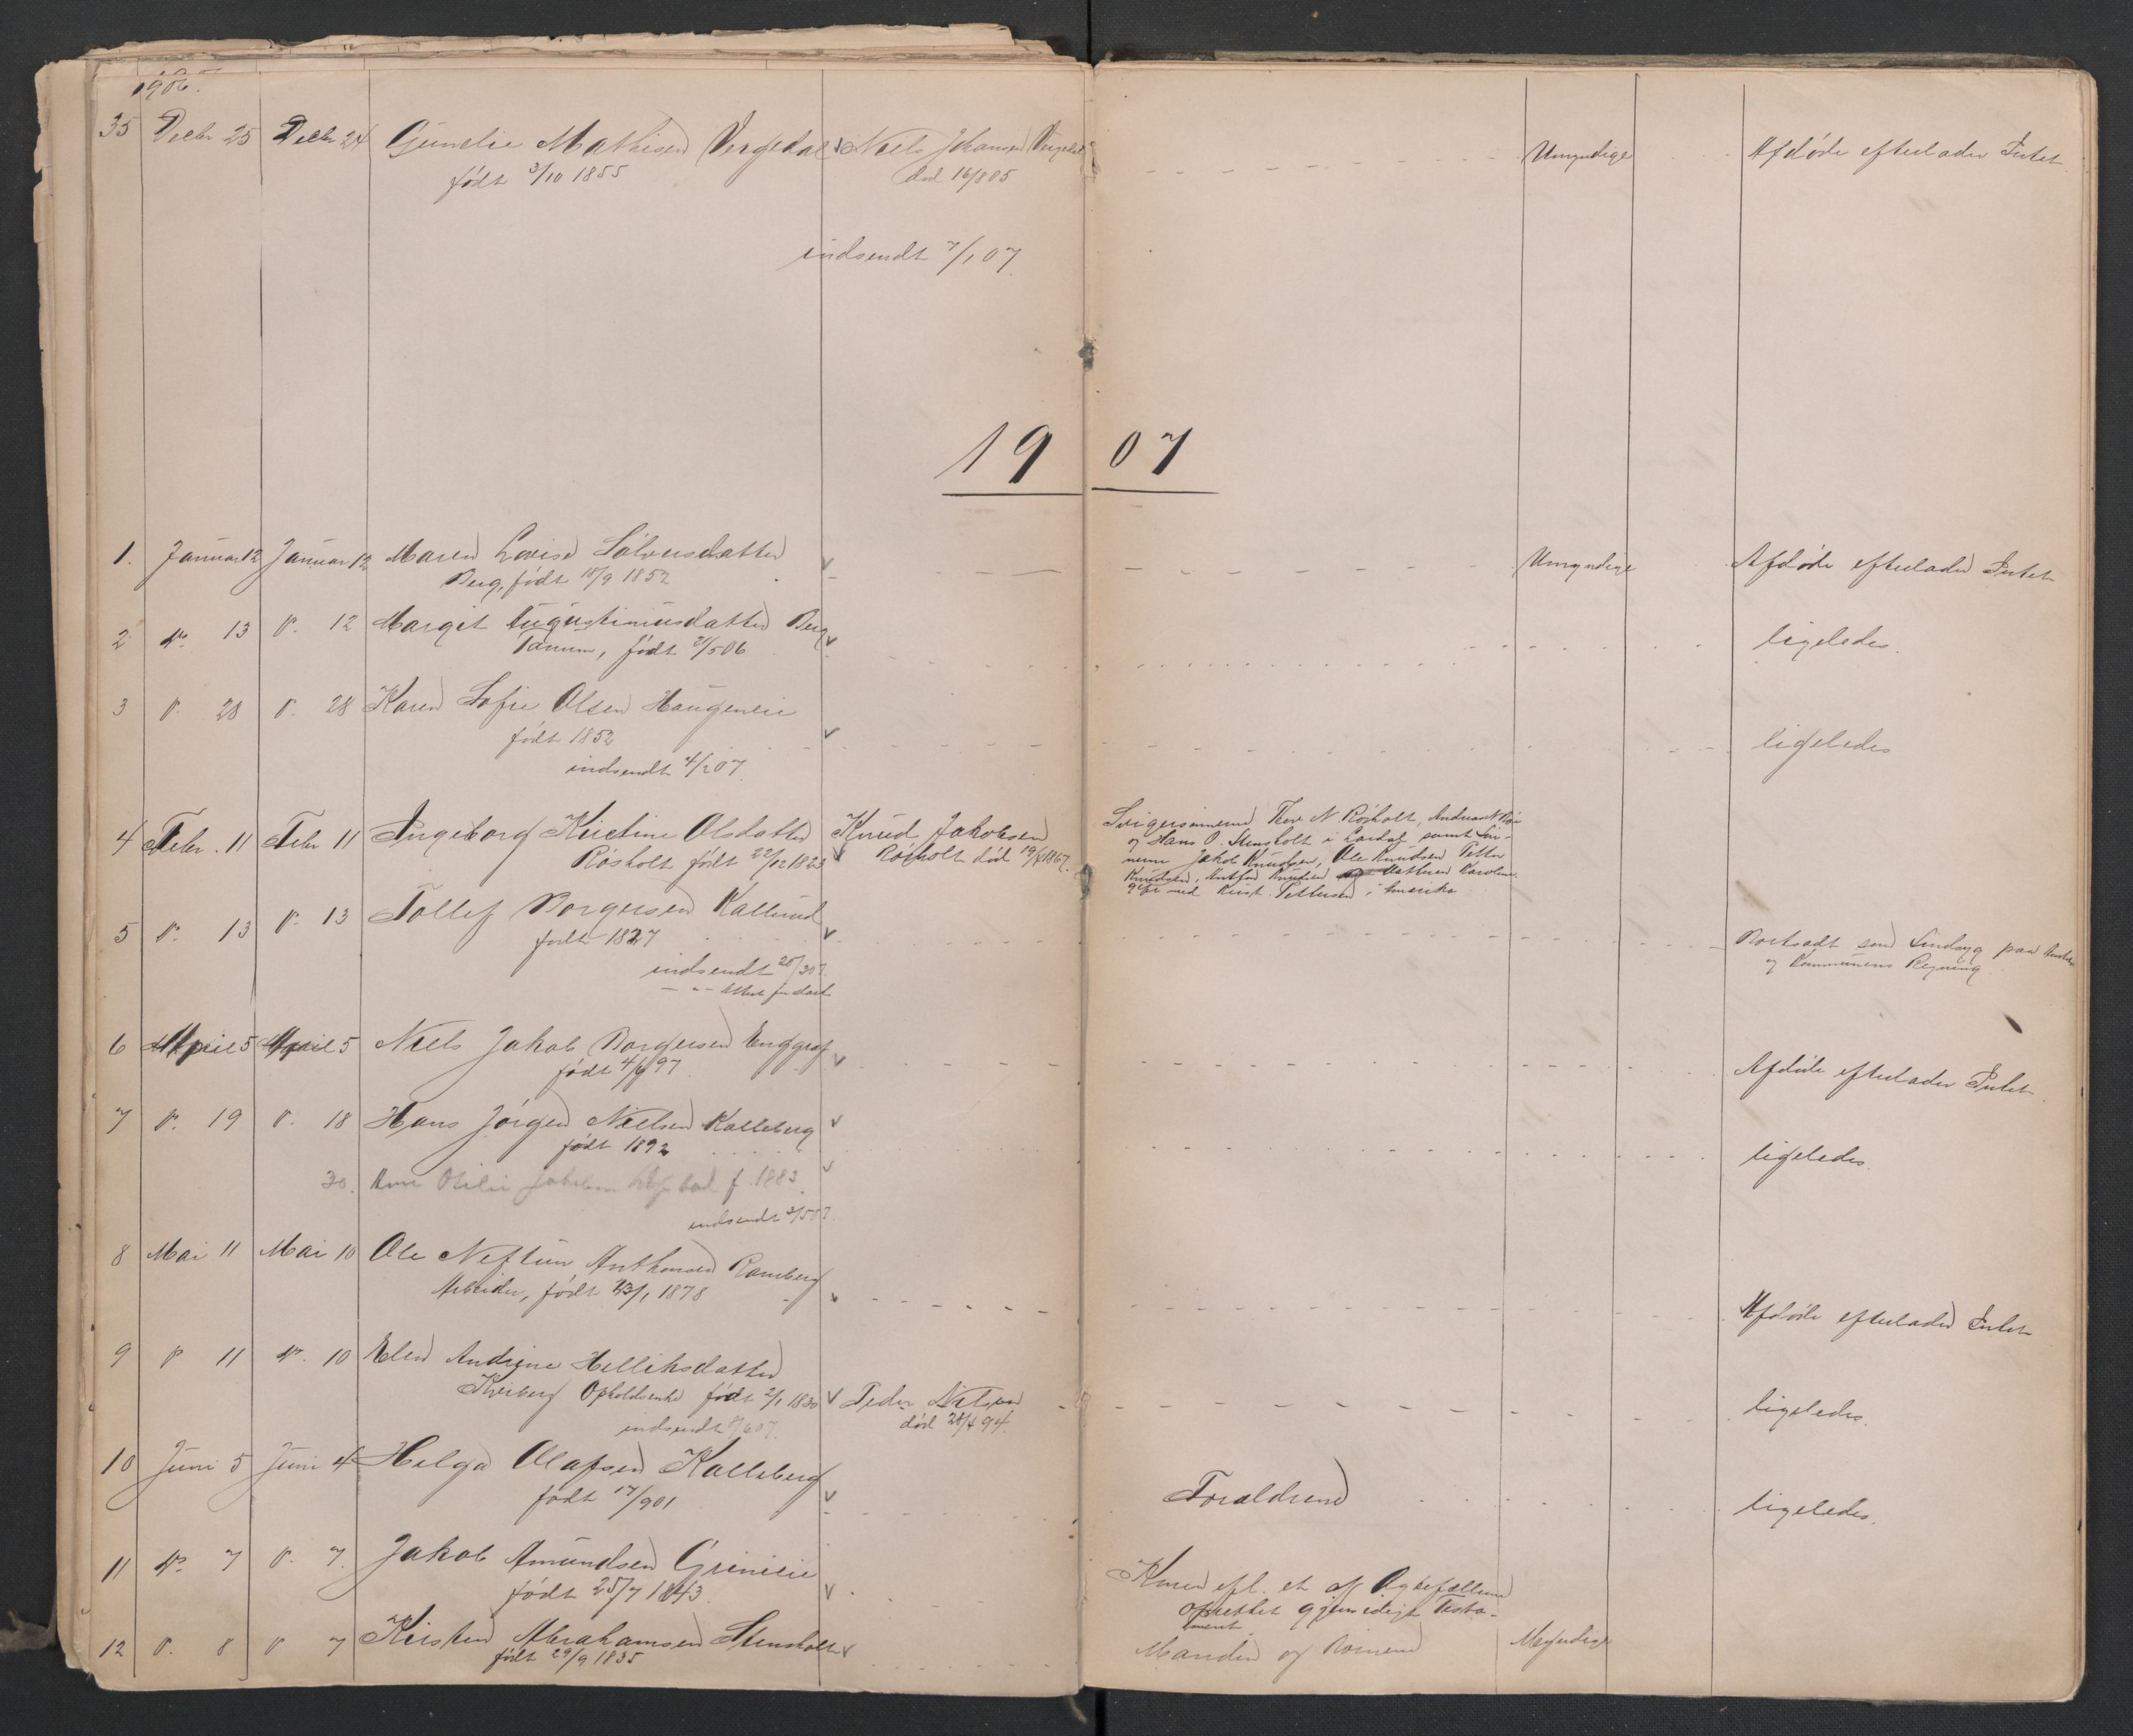 1906.
35 Decbr 25 Decbr 24 Gunelie Mathisen Vergedal Niels Johansen Umyndige Afdøde efterlader Intet
født 3/10 1855 død 16/8 05
indsendt 7/1 07.
1907
1. Januar 12 Januar 12 Maren Lovise Sølversdatter Umyndige Afdøde efterlader Intet
Berg, født 18/9 1852
2 do. 13 do. 12 Margit Augustiniusdatter Berg ligeledes.
Tanum, født 2/5 06
3 do. 28 do. 28 Karen Sofie Olsen Haugeneie ligeledes
født 1852
indsendt 4/2 07.
4 Febr. 11 Febr 11 Ingeborg Kirstine Olsdatter Knud Jakobsen Svigersønnerne Thor N Røsholt,
Røsholt født 22/12 1823 Røsholt død 19/4 1867. og Hans O. Stensholt i Lardal, samt Søn-
nerne Jakob Knudsen, Ole Knudsen Petter
Knudsen, Knudsen Datteren Karoline
gift med Krist. Pettersen i Amerika
5 do. 13 do. 13 Tollef Borgersen Kallerud
født 1827 Bortsadt som Sindsyg paa
og Kommunens Regning
indsendt
6 April 5 April 5 Niels Jakob Borgersen Enggrav Afdøde efterlader Intet.
født 4/9 97
7 do. 19 do. 18 Hans Jørgen Nielsen Kalleberg ligeledes.
født 1892
30. Otilie f. 1883.
indsendt 3/5 07.
8 Mai 11 Mai 10 Ole Neftun Anthonsen Ramberg Afdøde efterlader Intet
Arbeider, født 23/1 1878
9 do 11 do. 10 Elen Andrine Helliksdatter ligeledes.
Opholdsenke født 2/1 1830 Peder Nilsen
indsendt 8/6 07. død 28/4 94.
10 Juni 5 Juni 4 Helga Olafsen Kalleberg Forældrene ligeledes.
født 17/9 01
11 do. 7 do. 7. Jakob Amundsen Grinieie Konen efl. et af Ægtefællerne
født 25/7 1843. oprettet gjensidigt Testa-
ment
12 do. 8 do 7 Kirsten Abrahamsen Stensholt Manden og Børnene Myndige
født 29/9 1835